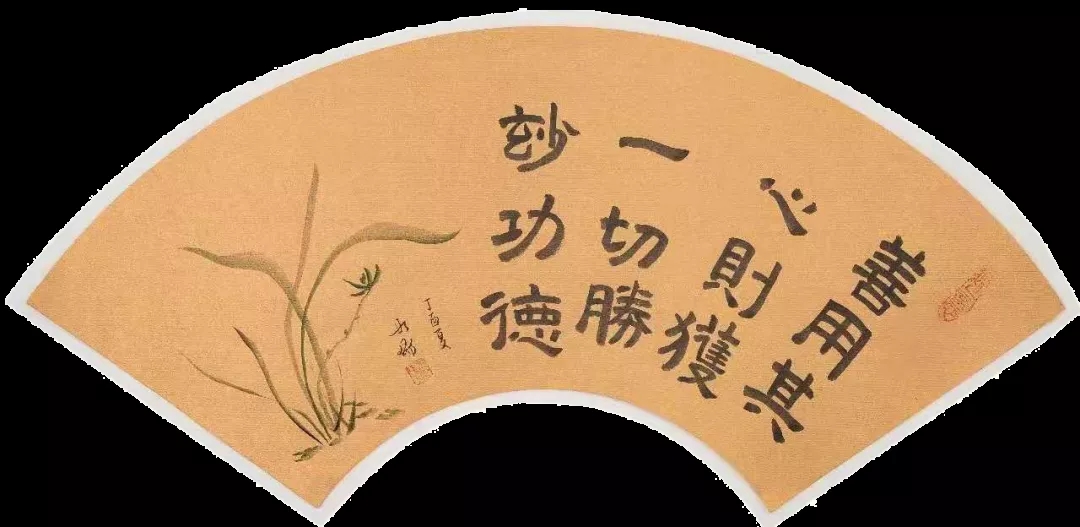 善用其
心則獲
一切勝
玅功德
丁酉夏